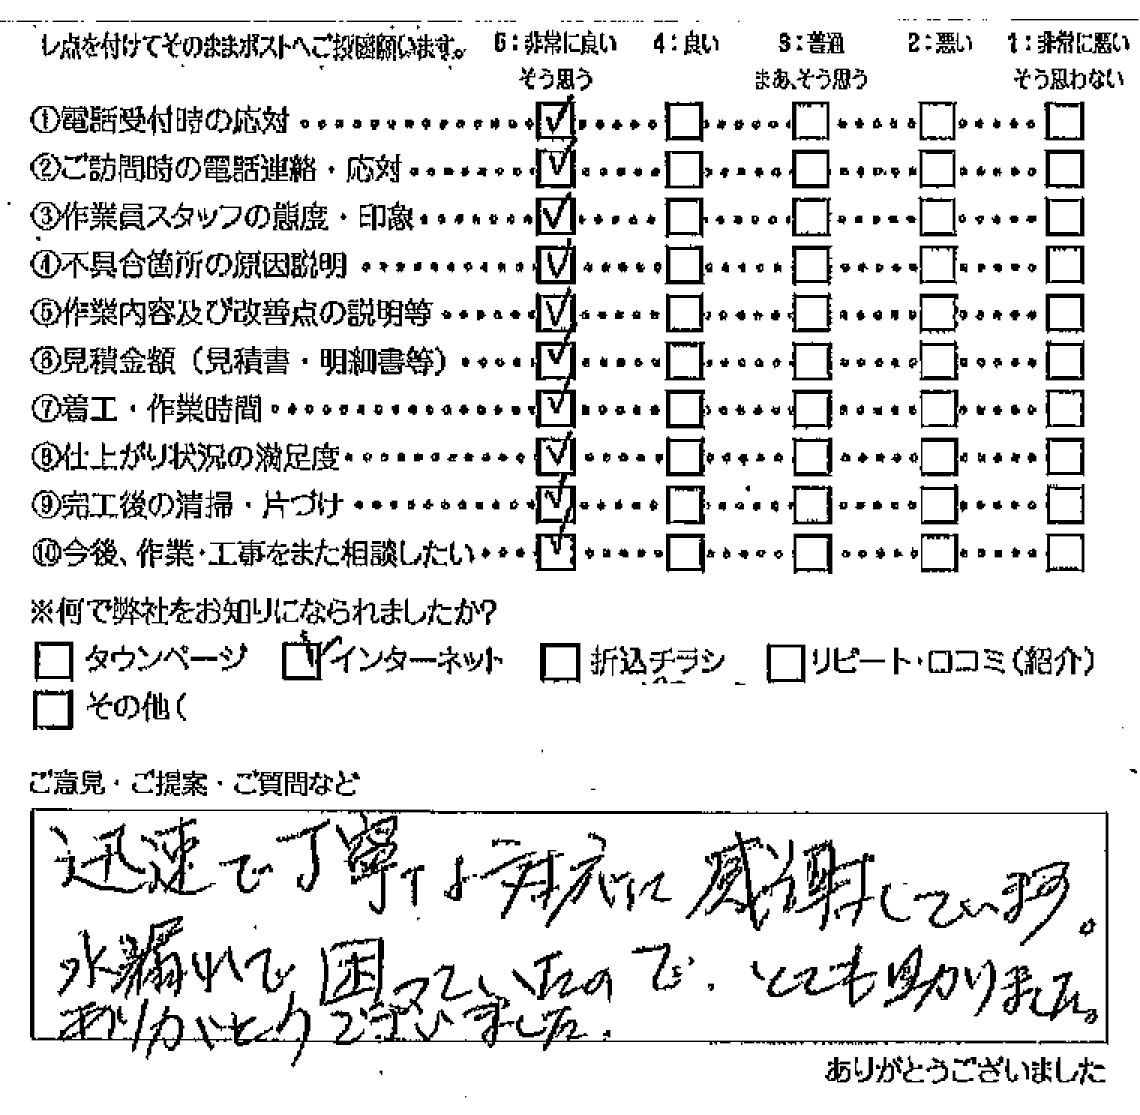 レ点を付けてそのままポストへご投函願います。 5：非常に良い 4：良い 3：普通 2：悪い 1：非常に悪い
そう思う まあ、そう思う そう思わない
①電話受付時の応対
②ご訪問時の電話連絡・応対
③作業員スタッフの態度・印象
④不具合箇所の原因説明
⑤作業内容及び改善点の説明等
⑥見積金額（見積書・明細書等）
⑦着工・作業時間
⑧仕上がり状況の満足度
⑨完工後の清掃・片づけ
⑩今後、作業・工事をまた相談したい
※何で弊社をお知りになられましたか?
タウンページ インターネット 折込チラシ リピート・口コミ（紹介）
その他（
ご意見・ご提案・ご質問など
迅速で丁寧な対応に感謝しています。
水漏れで困っていたので、とても助かりました。
ありがとうございました。
ありがとうございました